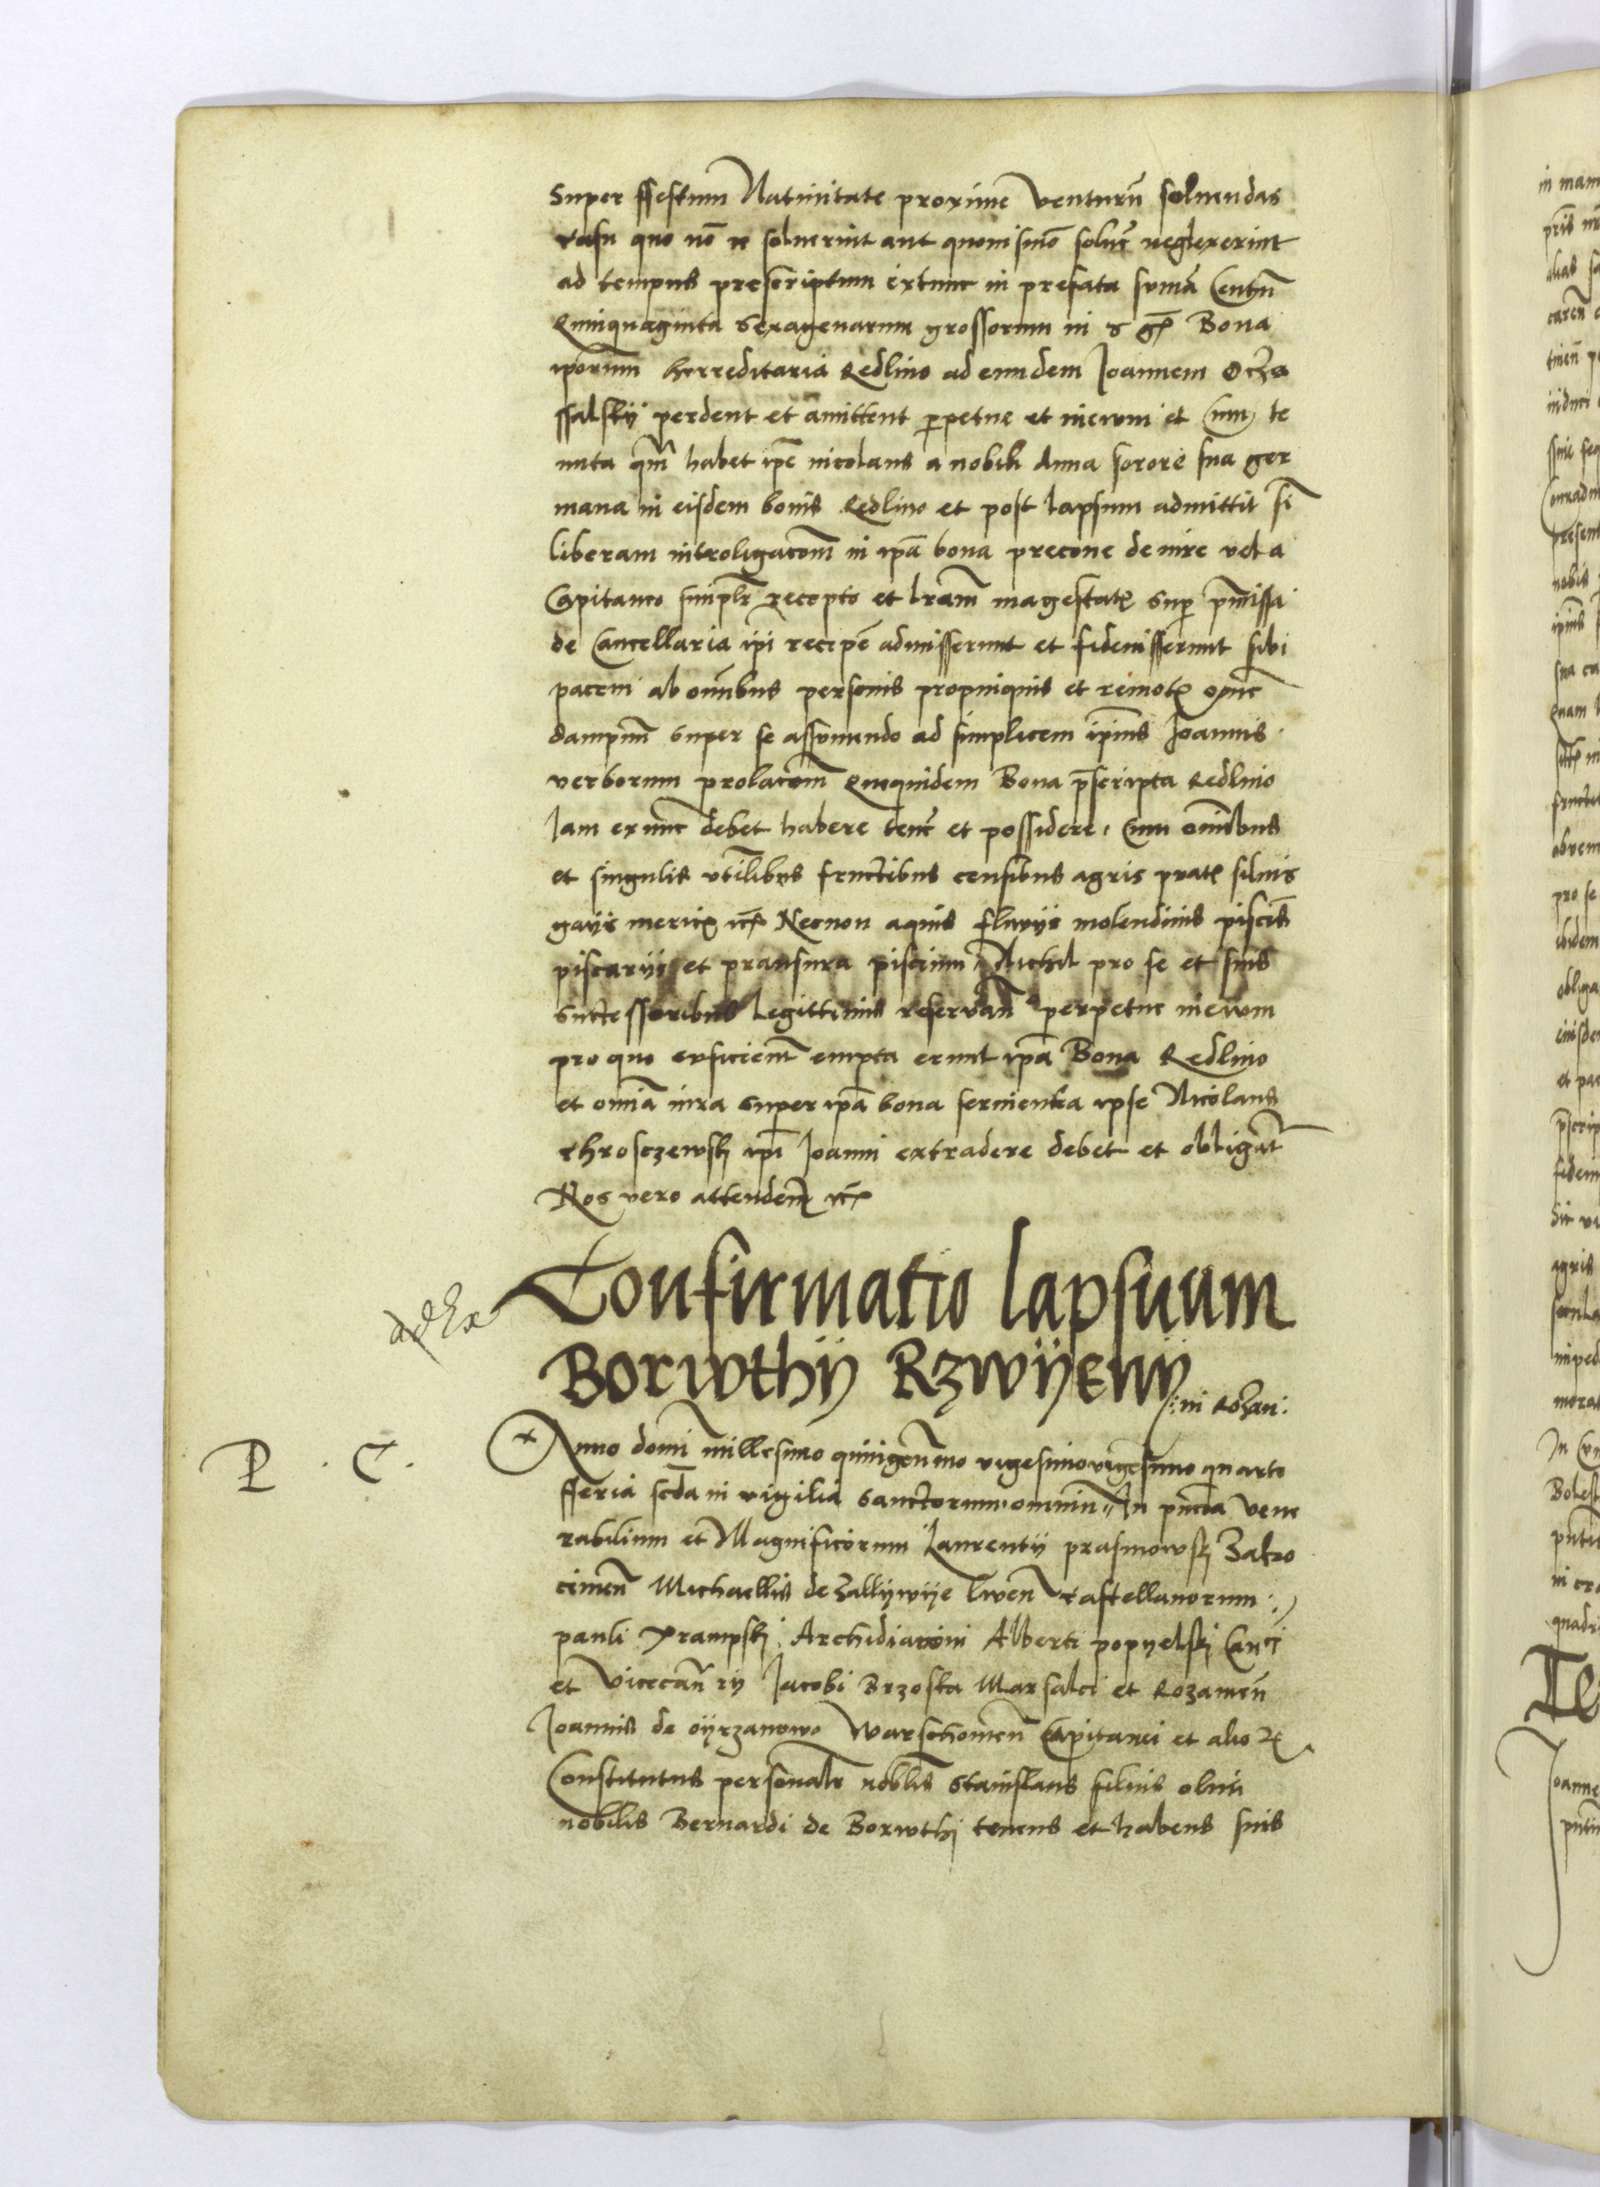 Super ffestum Natiuitate proxime venturũ soluendas
casu quo nõ soluerint aut quouismõ soluẽ neglexerint
ad tempus prescriptum extunc in prefata sumã Centũ
Quinquaginta sexagenarum grossorum in s gr Bona
ipsorum herreditaria Redlino ad eundem Joannem Ocza
ssalskij perdent et amittent ꝑpetue et in ewm et cum te
nuta qm̃ habet ipẽ nicolaus a nobili Anna sorore sua ger
mana in eisdem bonis Redlino et post lapsum admittit si
liberam introligacom̃ in ipã bona precone de iure vel a
Capitaneo simplr̃ recepto et lram̃ magestatꝭ supꝛ pmissa
de Cancellaria ipi recipẽ admisserunt et fideiusserunt sibi
pacem ab omibus personis propinquis et remotꝭ omẽ
dampnũ super se assumendo ad simplicem ipius Joannis
verborum prolacom̃ Quequidem Bona p̃scripta Redlino
Jam exnunc debet habere tenẽ et possidere Cum omibus
et singulis vtilibus fructibus censibus agris pratꝭ siluis
gayis mericꝭ etc̃ Necnon aquis fluvijs molendinis piscis
piscarijs et pransura piscium Nichil pro se et suis
successoribus Legittimis reseruan̄ perpetue in ewm
pro quo erficient̃ empta erunt ipã Bona Redlino
et omia iura super ipã bona seruientia ipse Nicolaus
Chrosczewskj ipi Joanni extradere debet et obligat̃
Nos vero attendem̃ etc̃
ad Ex
Confirmatio lapsuum
Borwthij Rzwijewij
:in Rozan:
P . C .
Anno domi millesimo quingen̄mo vigesimo quarto
fferia scda in vigilia sanctorum omnium In pn̄cia vene
rabilium et Magnificorum Laurentij prasmowskj Zakro
cimen̄ Michaellis de Zallijwije liwen̄ Castellanorum
pauli Krampskj Archidiaconi Alberti popyelskj Canci
et Vicecan̄rij Jacobi Brzoska Marsalci et Rozanien̄
Joannis de oyrzanowo Warschouien̄ Capitanei et alioꝝ
Constitutus personalr̃ nobl̃is Stanislaus filius olim
nobilis Bernardi de Borwthj tenens et habens suis